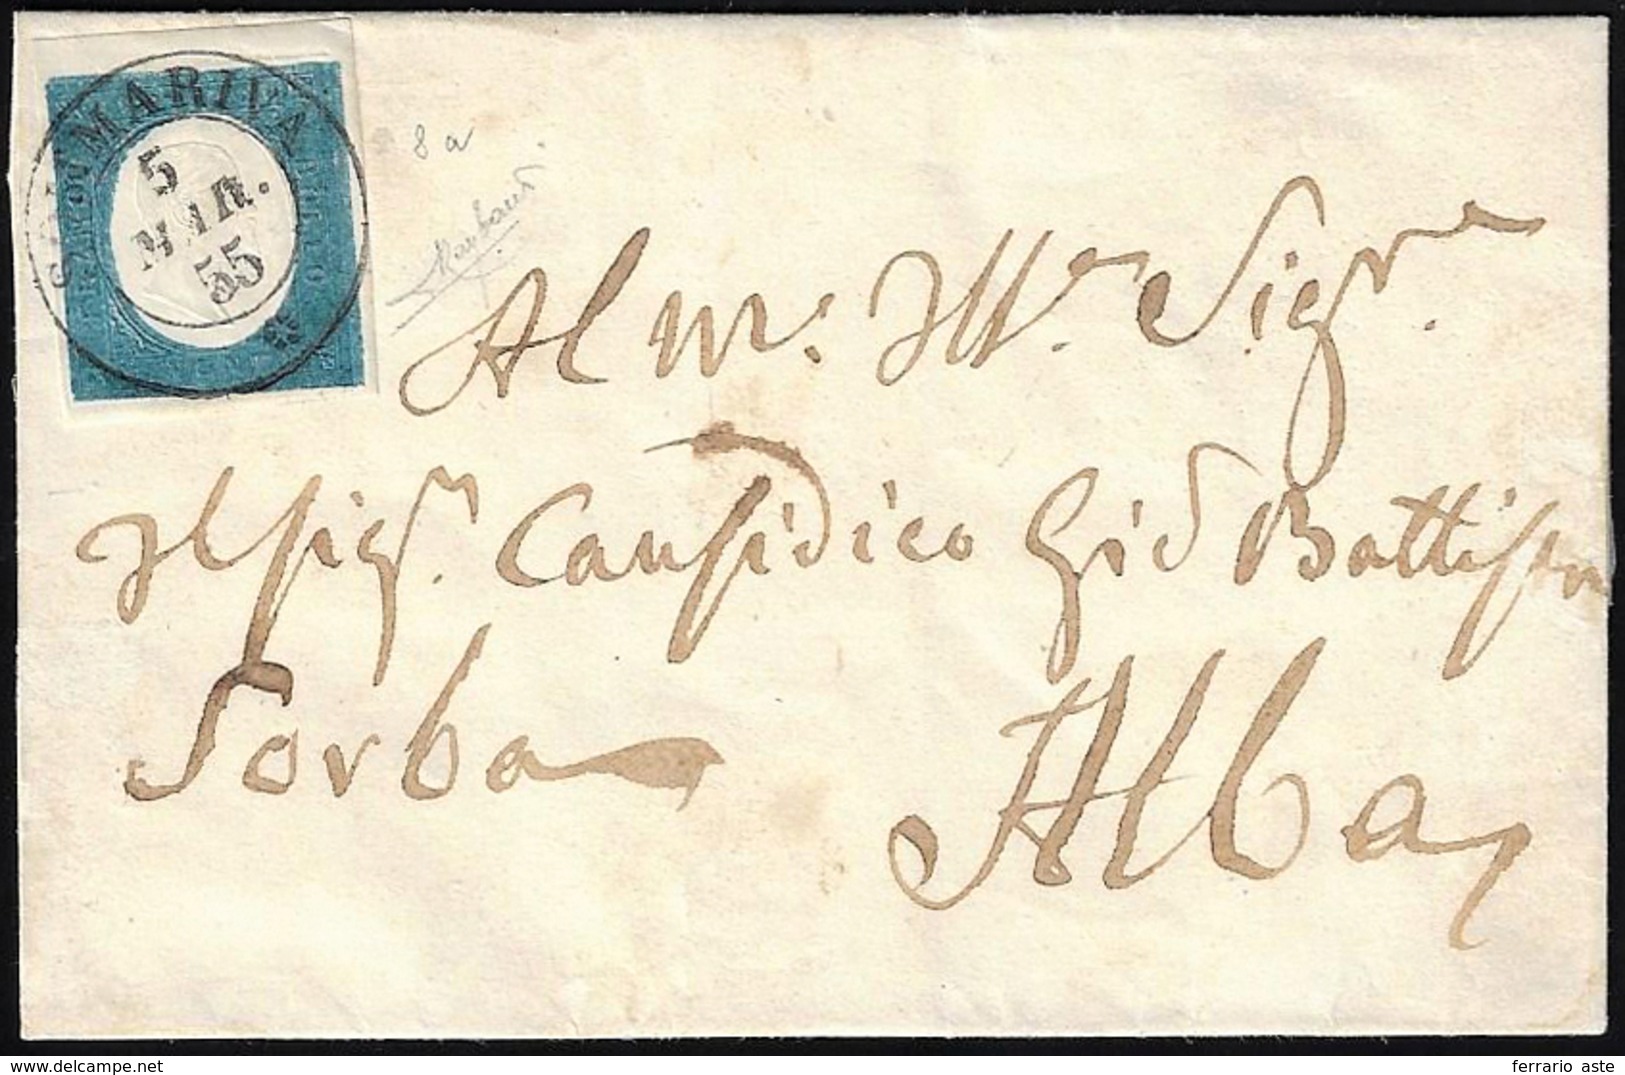 SOMMARIVA
5
MAR.
55
8 a
Al m: Ill.re Sigr.
Il Sigr. Causidico Gio Battista
Sorba
Alba
delcampe.net
ferrario aste